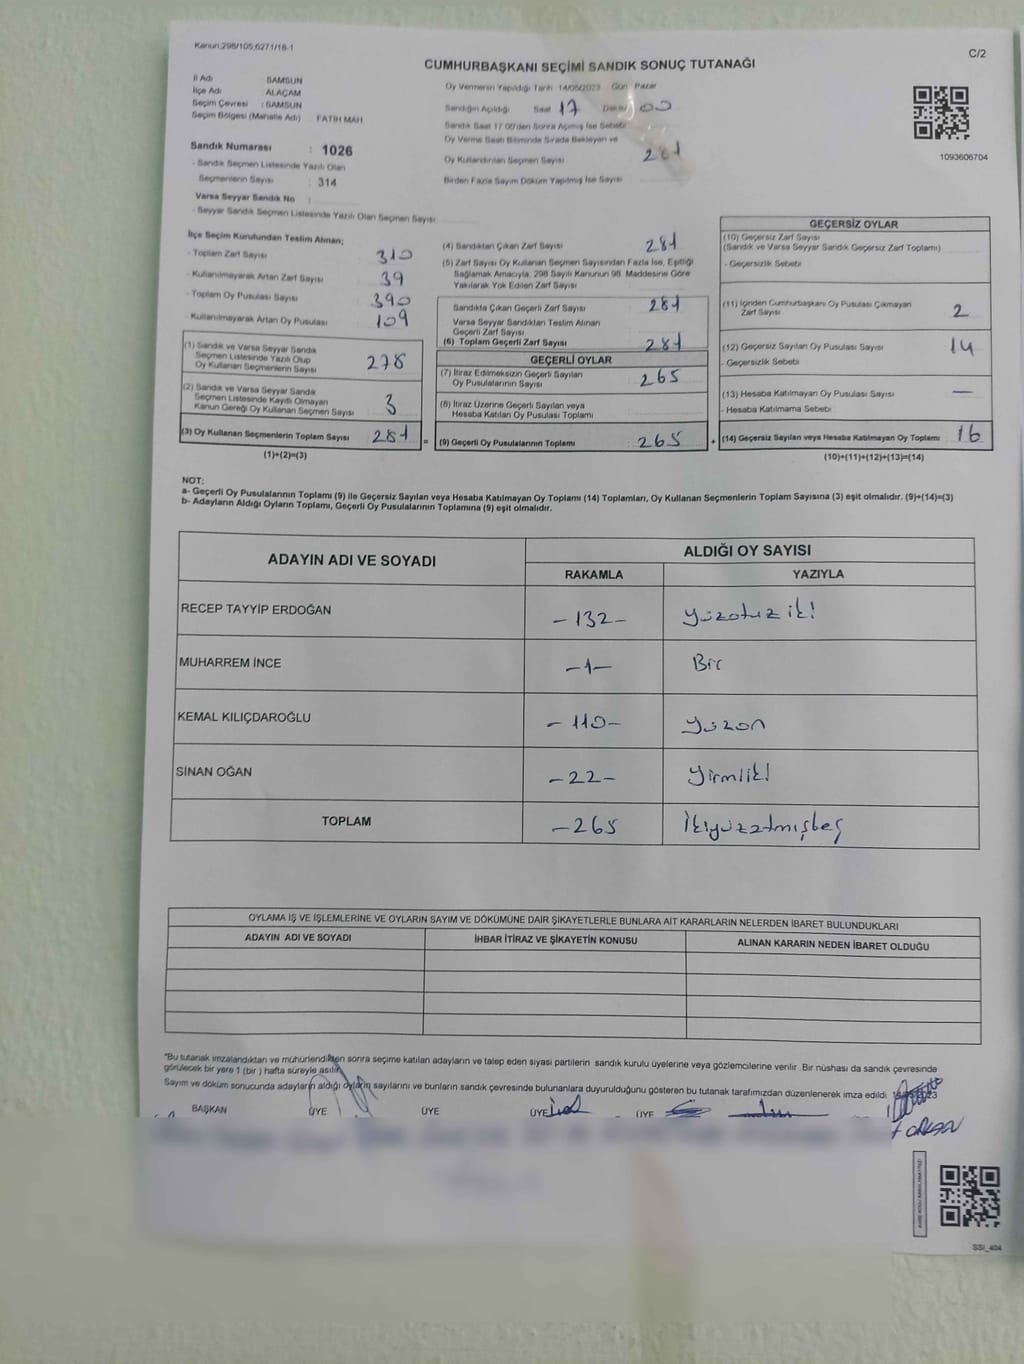 Kanun:298/105;6271/18-1
C/2
CUMHURBAŞKANI SEÇİMİ SANDIK SONUÇ TUTANAĞI
İl Adı SAMSUN
İlçe Adı ALAÇAM
Seçim Çevresi : SAMSUN
Seçim Bölgesi (Mahalle Adı) FATİH MAH
Sandık Numarası : 1026
- Sandık Seçmen Listesinde Yazılı Olan
Seçmenlerin Sayısı : 314
Varsa Seyyar Sandık No :
- Seyyar Sandık Seçmen Listesinde Yazılı Olan Seçmen Sayısı
Oy Vermenin Yapıldığı Tarih 14/05/2023 Gün Pazar
Sandığın Açıldığı Saat 17 Dakika 00
Sandık Saat 17.00'den Sonra Açılmış İse Sebebi
Oy Verme Saati Bitiminde Sırada Bekleyen ve
Oy Kullandırılan Seçmen Sayısı 281
Birden Fazla Sayım Döküm Yapılmış İse Sayısı
1093606704
İlçe Seçim Kurulundan Teslim Alınan;
- Toplam Zarf Sayısı 310
- Kullanılmayarak Artan Zarf Sayısı 39
- Toplam Oy Pusulası Sayısı 390
- Kullanılmayarak Artan Oy Pusulası 109
(1) Sandık ve Varsa Seyyar Sandık
Seçmen Listesinde Yazılı Olup
Oy Kullanan Seçmenlerin Sayısı 278
(2) Sandık ve Varsa Seyyar Sandık
Seçmen Listesinde Kayıtlı Olmayan
Kanun Gereği Oy Kullanan Seçmen Sayısı 3
(3) Oy Kullanan Seçmenlerin Toplam Sayısı 281
(1)+(2)=(3)
(4) Sandıktan Çıkan Zarf Sayısı 281
(5) Zarf Sayısı Oy Kullanan Seçmen Sayısından Fazla İse, Eşitliği
Sağlamak Amacıyla, 298 Sayılı Kanunun 98. Maddesine Göre
Yakılarak Yok Edilen Zarf Sayısı
Sandıkta Çıkan Geçerli Zarf Sayısı 281
Varsa Seyyar Sandıktan Teslim Alınan
Geçerli Zarf Sayısı
(6) Toplam Geçerli Zarf Sayısı 281
GEÇERLİ OYLAR
(7) İtiraz Edilmeksizin Geçerli Sayılan
Oy Pusulalarının Sayısı 265
(8) İtiraz Üzerine Geçerli Sayılan veya
Hesaba Katılan Oy Pusulası Toplamı
= (9) Geçerli Oy Pusulalarının Toplamı 265 +
GEÇERSİZ OYLAR
(10) Geçersiz Zarf Sayısı
(Sandık ve Varsa Seyyar Sandık Geçersiz Zarf Toplamı)
- Geçersizlik Sebebi
(11) İçinden Cumhurbaşkanı Oy Pusulası Çıkmayan
Zarf Sayısı 2
(12) Geçersiz Sayılan Oy Pusulası Sayısı 14
- Geçersizlik Sebebi
(13) Hesaba Katılmayan Oy Pusulası Sayısı —
- Hesaba Katılmama Sebebi
(14) Geçersiz Sayılan veya Hesaba Katılmayan Oy Toplamı 16
(10)+(11)+(12)+(13)=(14)
NOT:
a- Geçerli Oy Pusulalarının Toplamı (9) ile Geçersiz Sayılan veya Hesaba Katılmayan Oy Toplamı (14) Toplamları, Oy Kullanan Seçmenlerin Toplam Sayısına (3) eşit olmalıdır. (9)+(14)=(3)
b- Adayların Aldığı Oyların Toplamı, Geçerli Oy Pusulalarının Toplamına (9) eşit olmalıdır.
ADAYIN ADI VE SOYADI ALDIĞI OY SAYISI
RAKAMLA YAZIYLA
RECEP TAYYİP ERDOĞAN -132- Yüzotuziki
MUHARREM İNCE -1- Bir
KEMAL KILIÇDAROĞLU -110- Yüzon
SİNAN OĞAN -22- Yirmiiki
TOPLAM -265 İkiyüzatmışbeş
OYLAMA İŞ VE İŞLEMLERİNE VE OYLARIN SAYIM VE DÖKÜMÜNE DAİR ŞİKAYETLERLE BUNLARA AİT KARARLARIN NELERDEN İBARET BULUNDUKLARI
ADAYIN ADI VE SOYADI İHBAR İTİRAZ VE ŞİKAYETİN KONUSU ALINAN KARARIN NEDEN İBARET OLDUĞU
"Bu tutanak imzalandıktan ve mühürlendikten sonra seçime katılan adayların ve talep eden siyasi partilerin sandık kurulu üyelerine veya gözlemcilerine verilir. Bir nüshası da sandık çevresinde
görülecek bir yere 1 (bir) hafta süreyle asılır.
Sayım ve döküm sonucunda adayların aldığı oyların sayılarını ve bunların sandık çevresinde bulunanlara duyurulduğunu gösteren bu tutanak tarafımızdan düzenlenerek imza edildi.
BAŞKAN ÜYE ÜYE ÜYE ÜYE
SSI_404